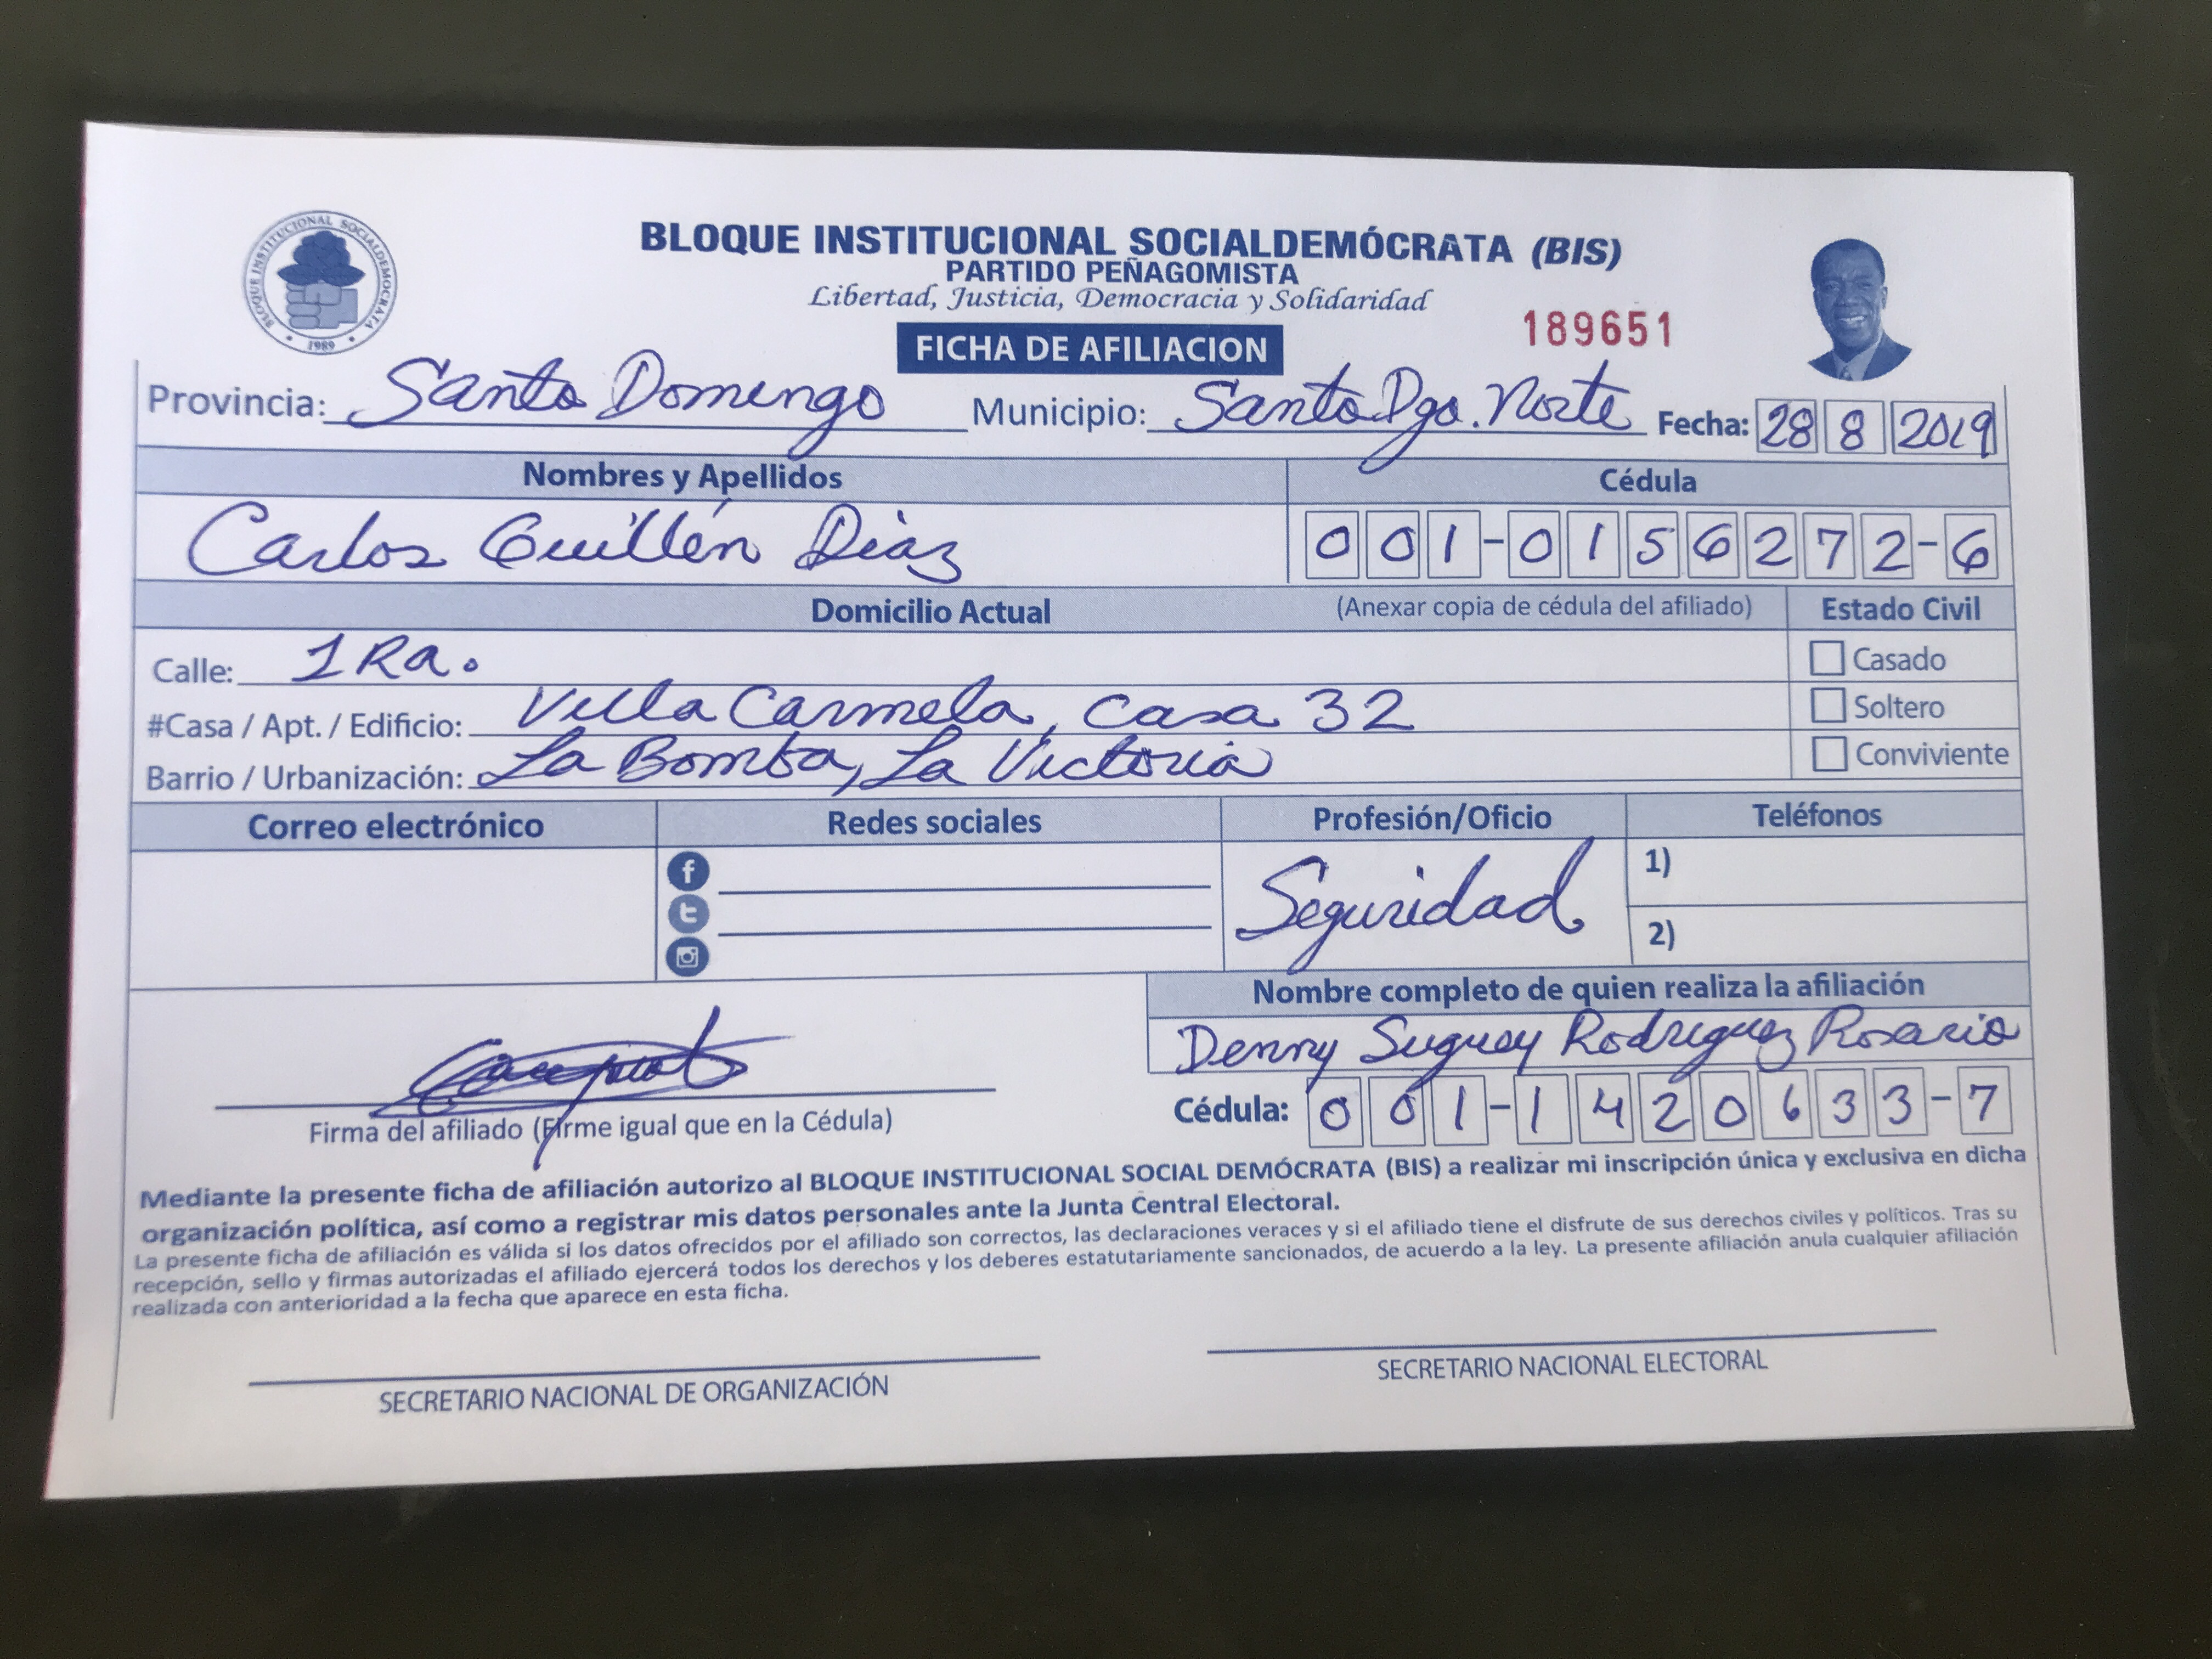 BLOQUE INSTITUCIONAL SOCIALDEMOCRATA
1989
BLOQUE INSTITUCIONAL SOCIALDEMÓCRATA (BIS)
PARTIDO PEÑAGOMISTA
Libertad, Justicia, Democracia y Solidaridad
FICHA DE AFILIACION
189651
Provincia: Santo Domingo Municipio: Santo Dgo. Norte Fecha: 28 8 2019
Nombres y Apellidos Cédula
Carlos Guillén Diaz 001-0156272-6
Domicilio Actual (Anexar copia de cédula del afiliado) Estado Civil
Calle: 1Ra. Casado
#Casa / Apt. / Edificio: Villa Carmela, casa 32 Soltero
Barrio / Urbanización: La Bomba, La Victoria Conviviente
Correo electrónico Redes sociales Profesión/Oficio Teléfonos
Seguridad 1)
2)
Nombre completo de quien realiza la afiliación
Denny Suguey Rodriguez Rosario
Cédula: 001-1420633-7
Firma del afiliado (Firme igual que en la Cédula)
Mediante la presente ficha de afiliación autorizo al BLOQUE INSTITUCIONAL SOCIAL DEMÓCRATA (BIS) a realizar mi inscripción única y exclusiva en dicha
organización política, así como a registrar mis datos personales ante la Junta Central Electoral.
La presente ficha de afiliación es válida si los datos ofrecidos por el afiliado son correctos, las declaraciones veraces y si el afiliado tiene el disfrute de sus derechos civiles y políticos. Tras su
recepción, sello y firmas autorizadas el afiliado ejercerá todos los derechos y los deberes estatutariamente sancionados, de acuerdo a la ley. La presente afiliación anula cualquier afiliación
realizada con anterioridad a la fecha que aparece en esta ficha.
SECRETARIO NACIONAL DE ORGANIZACIÓN
SECRETARIO NACIONAL ELECTORAL